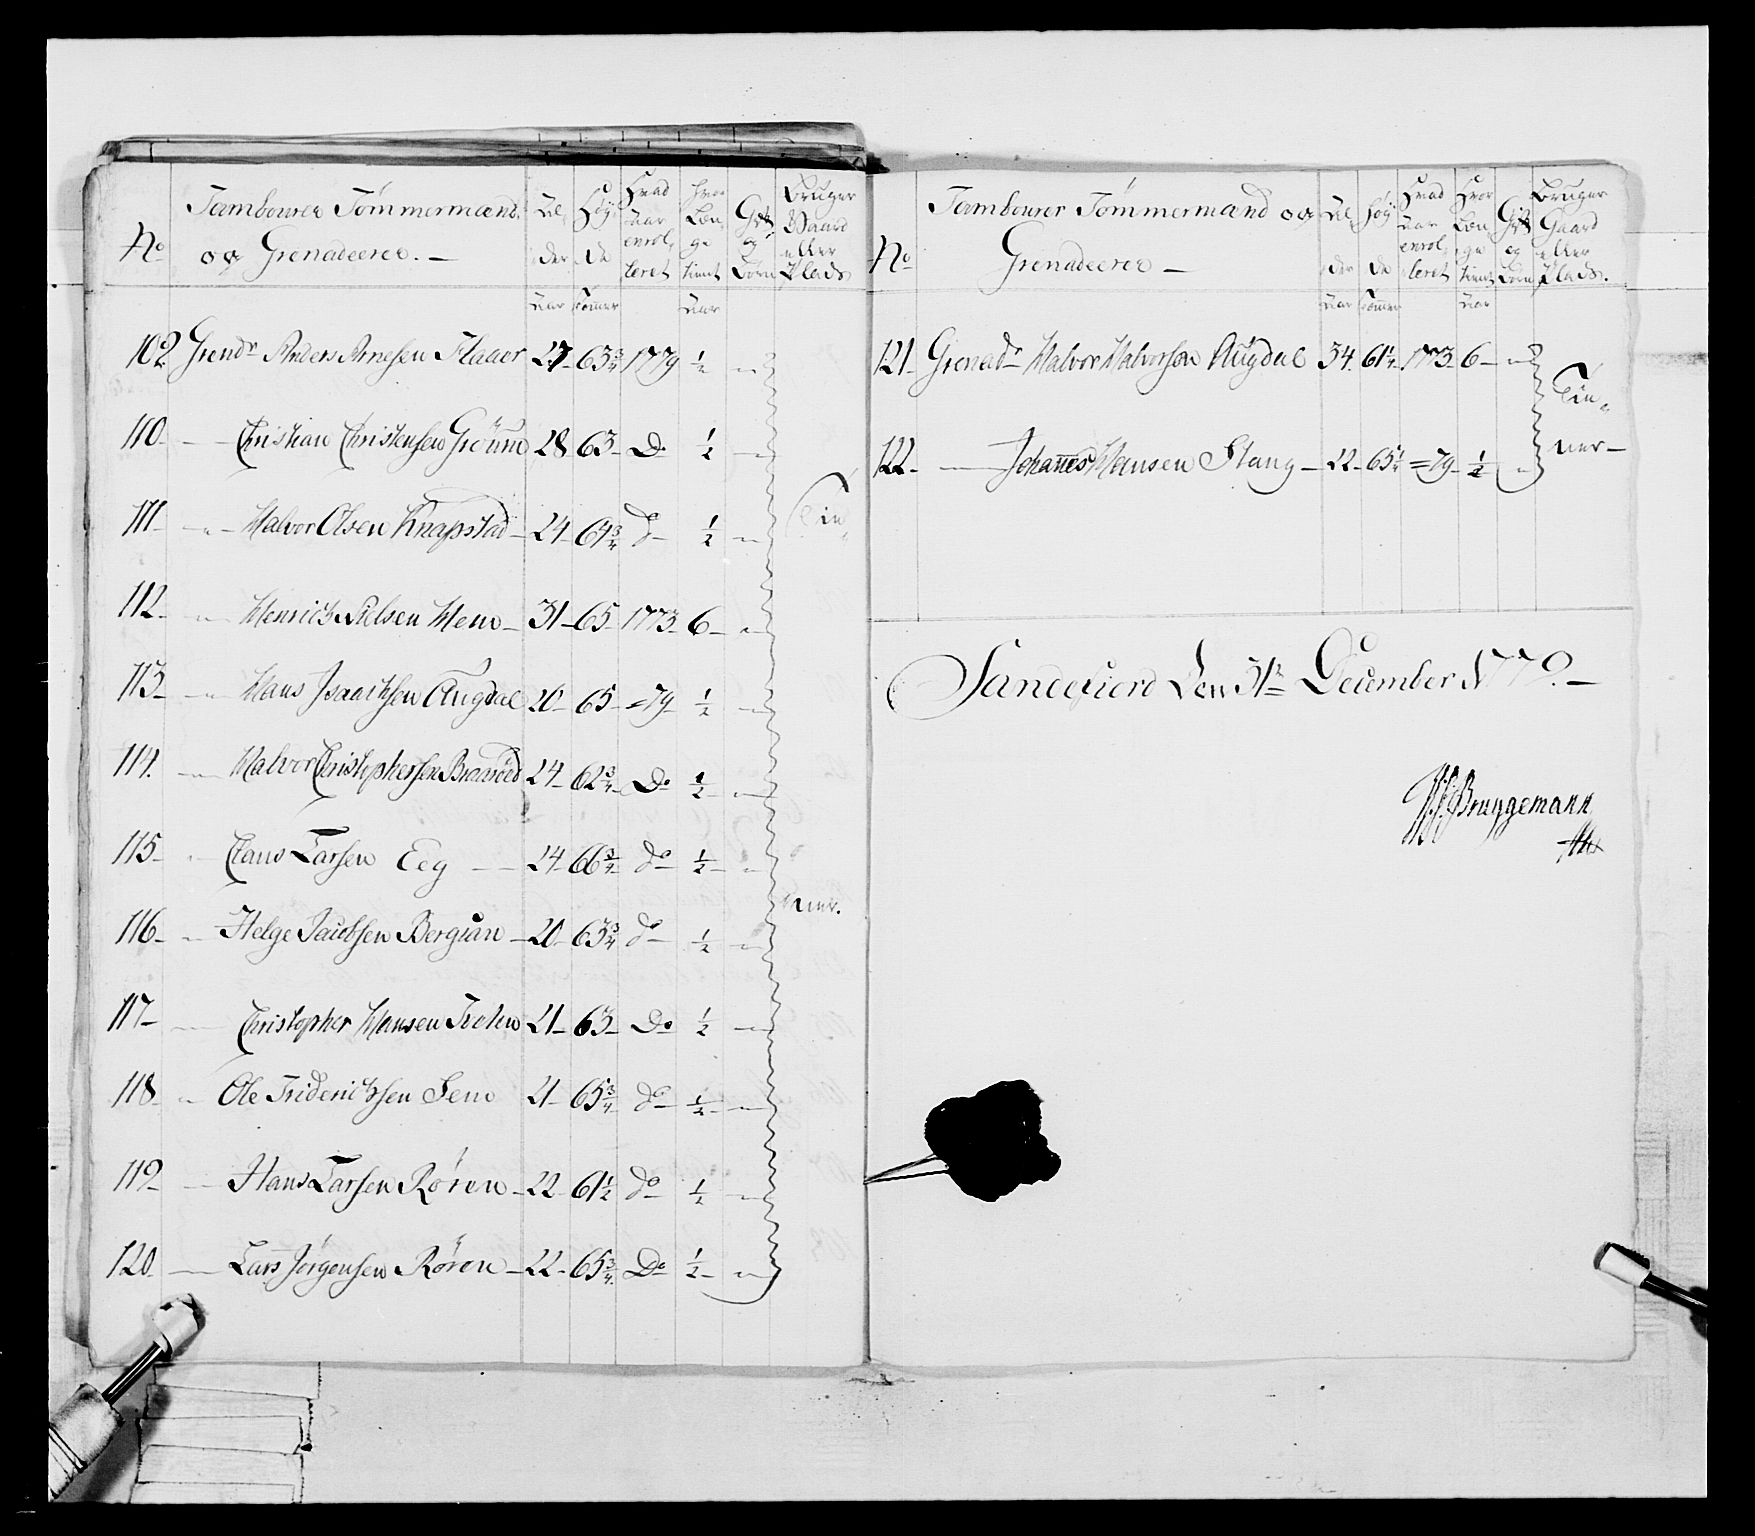 No Tambourer Tömmermænd og Grenadeerer. — Al- der Aar Høy- de Tommer Hvad Aar enrol- leret Hvor Læn- ge tient Aar Gift og Børn Bruger Gaard eller Plads
109 Grendr Anders Arnesen Flaaer 27 63 3/4 1779 1/2 "
110 — Christian Christensen 28 63 Do 1/2 "
111 " Halvor Olsen Knapstad 24 64 3/4 do 1/2 "
Tie-
112 " Henrich Nielsen Hem 31 65 1773 6 "
113 " Hans Isaachsen Augdal 20 65 =79 1/2 "
114. " Halvor Christophersen 24 62 3/4 Do 1/2 "
115 " Hans Larsen Eeg — 24 66 3/4 do 1/2 "
ner.
116 " Helge Jacobsen Bergan 20 63 3/4 do 1/2 "
117 " Christopher Hansen 21 63 Do 1/2 "
118 " Ole Friderichsen Sem 21 65 3/4 do 1/2 "
119 — Hans Larsen Røren 22 61 1/2 do 1/2 "
120 — Lars Jörgensen Røren 22 65 3/4 Do 1/2 "
No Tambourer Tömmermænd og Grenadeerer — Al- der Aar Høy- de Tommer Hvad Aar enrol- leret Hvor Læn- ge tient Aar Gift og Børn Bruger Gaard eller Plads.
121 Grenadr Halvor Halvorsen Augdal 34 61 1/4 1773 6 "
Tie-
ner —
122 — Johannes Hansen Stang 22 65 1/4 =79 1/2 "
Sandefiord Den 31te December 1779. —
Bruggemann